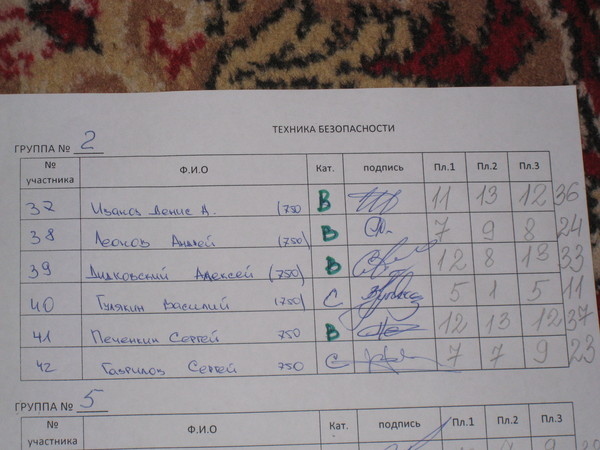 ТЕХНИКА БЕЗОПАСНОСТИ
ГРУППА № 2
№ участника Ф.И.О Кат. подпись Пл.1 Пл.2 Пл.3
37 Иванов Денис А. (750 В 11 13 12 36
38 Леонов Андрей (750) В 7 9 8 24
39 Дидковский Алексей (750) В 12 8 13 33
40 Гулякин Василий (750) С 5 1 5 11
41 Печенкин Сергей 750 В 12 13 12 37
42 Гаврилов Сергей 750 С 7 7 9 23
ГРУППА № 5
№ участника Ф.И.О Кат. подпись Пл.1 Пл.2 Пл.3